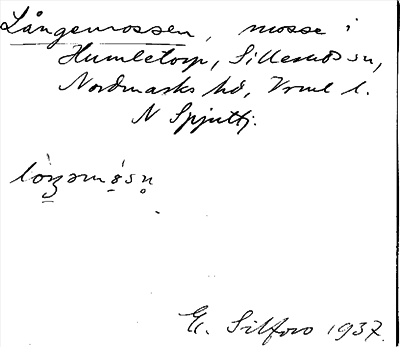 Långemossen, mosse i
Humletorp, Silleruds sn,
Nordmarks hd, Vrml l.
N Spjutbj.
E. Silfvo 1937.